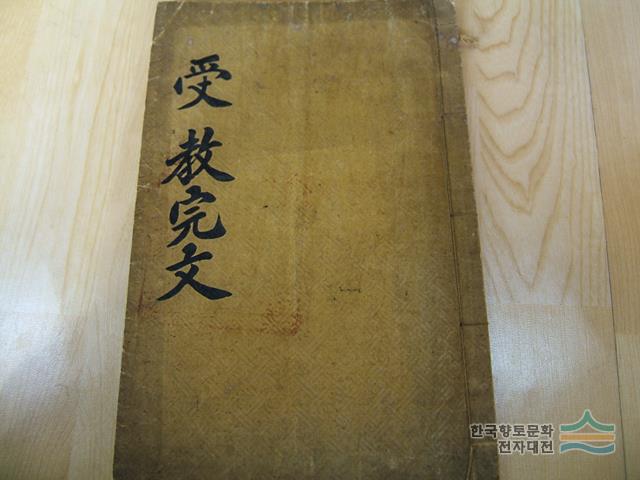 受教完文
한국향토문화
전자대전